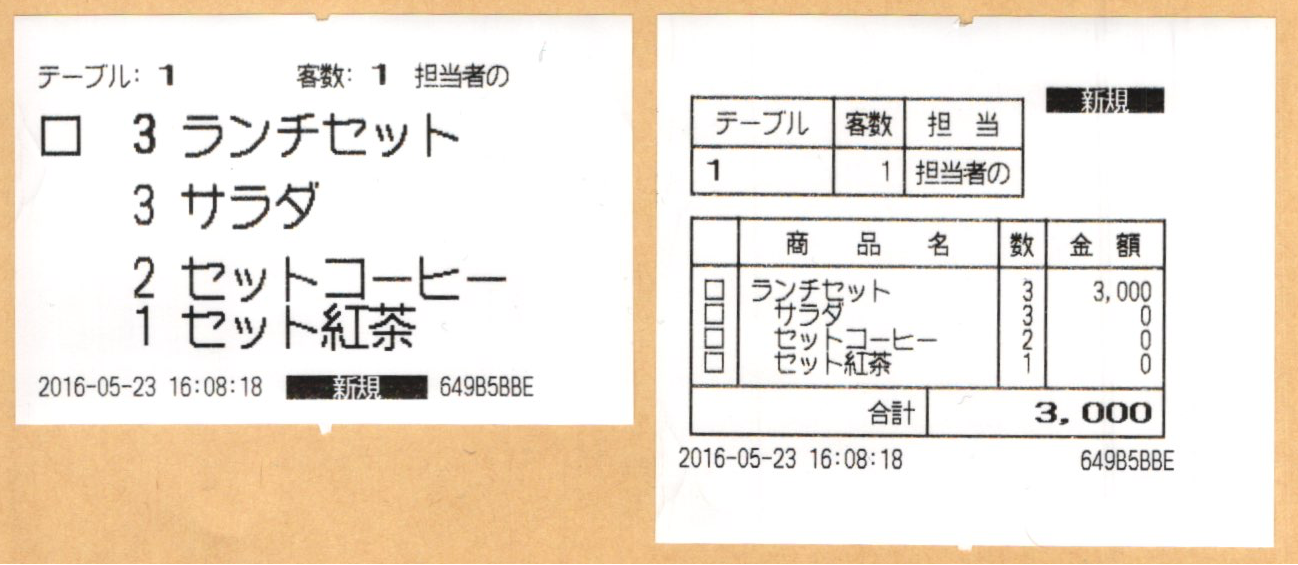 テーブル: 1 客数: 1 担当者の
□ 3 ランチセット
3 サラダ
2 セットコーヒー
1 セット紅茶
2016-05-23 16:08:18 新規 649B5BBE
新規
テーブル 客数 担 当
1 1 担当者の
商 品 名 数 金 額
□ ランチセット 3 3,000
□ サラダ 3 0
□ セットコーヒー 2 0
□ セット紅茶 1 0
合計 3,000
2016-05-23 16:08:18 649B5BBE